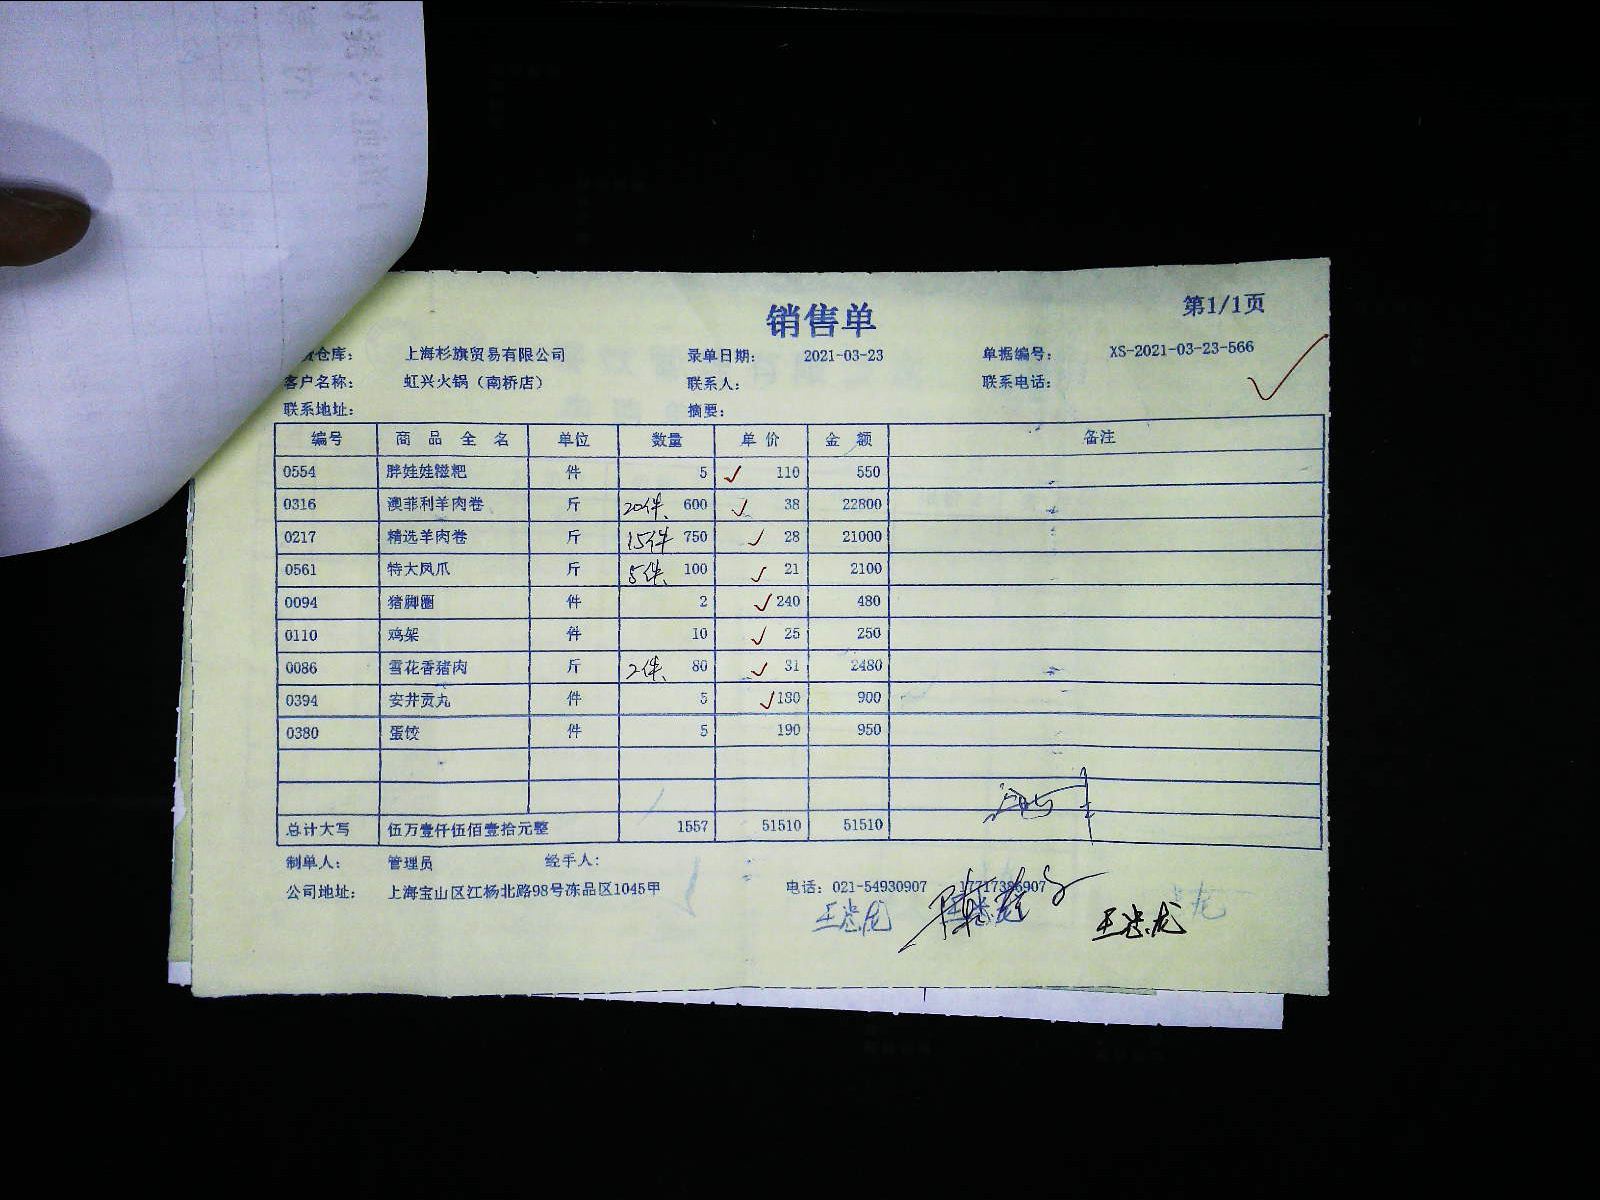 销售单
第1/1页
仓库： 上海杉旗贸易有限公司 录单日期： 2021-03-23 单据编号： XS-2021-03-23-566
客户名称： 虹兴火锅（南桥店） 联系人： 联系电话：
联系地址： 摘要：
编号 商品全名 单位 数量 单价 金额 备注
0554 胖娃娃糍粑 件 5 110 550
0316 澳菲利羊肉卷 斤 20件 600 38 22800
0217 精选羊肉卷 斤 15件 750 28 21000
0561 特大凤爪 斤 5件 100 21 2100
0094 猪脚圈 件 2 240 480
0110 鸡架 件 10 25 250
0086 雪花香猪肉 斤 2件 80 31 2480
0394 安井贡丸 件 5 180 900
0380 蛋饺 件 5 190 950
总计大写 伍万壹仟伍佰壹拾元整 1557 51510 51510
制单人： 管理员 经手人：
公司地址： 上海宝山区江杨北路98号冻品区1045甲 电话：021-54930907
王忠龙 王忠龙